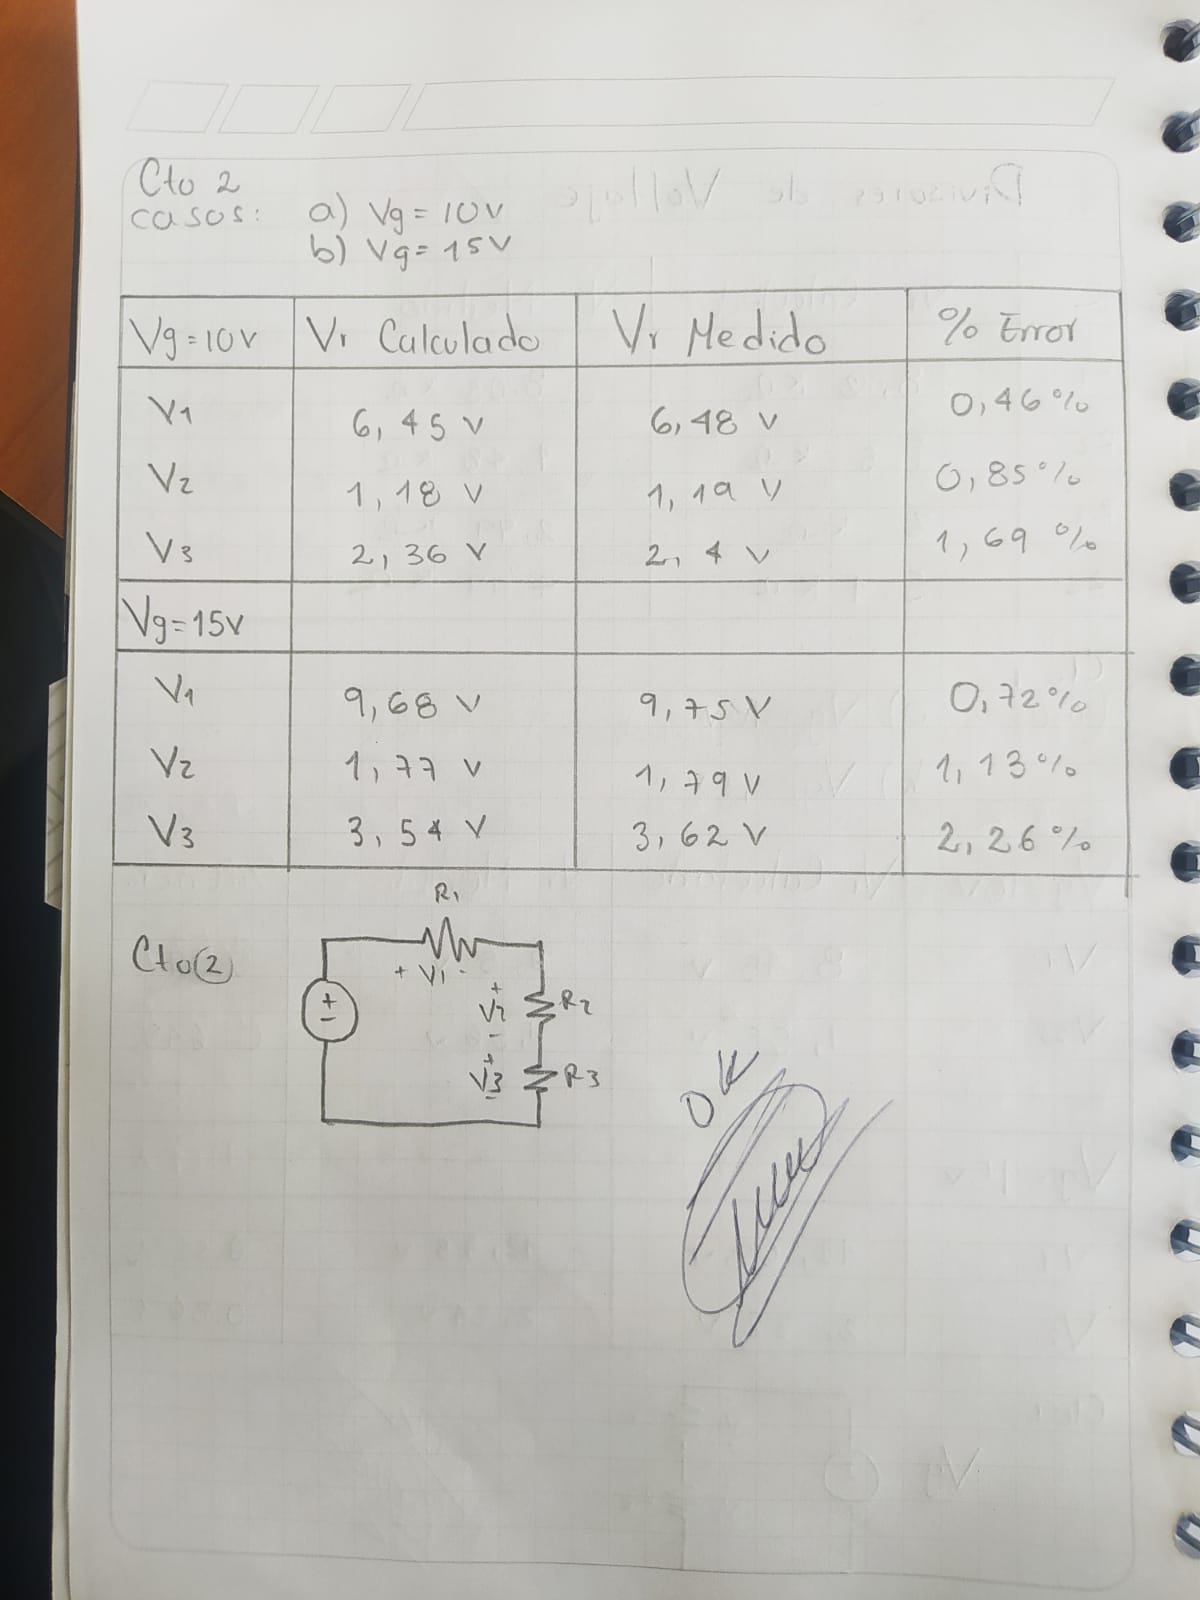 Cto 2
casos: a) Vg = 10v
b) Vg = 15v
Vg = 10v Vr Calculado Vr Medido % Error
V1 6,45 v 6,48 v 0,46%
V2 1,18 v 1,19 v 0,85%
V3 2,36 v 2,4 v 1,69 %
Vg = 15v
V1 9,68 v 9,75 v 0,72%
V2 1,77 v 1,79 v 1,13%
V3 3,54 v 3,62 v 2,26%
R1
Cto 2
+ V1 -
+
-
+
V2
-
R2
+
V3
-
R3
OK